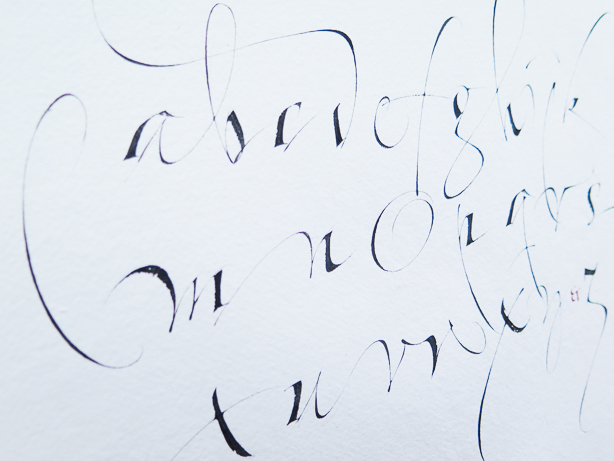 a b c d e f g h i j k
m n o p q r s
t u v w x y z